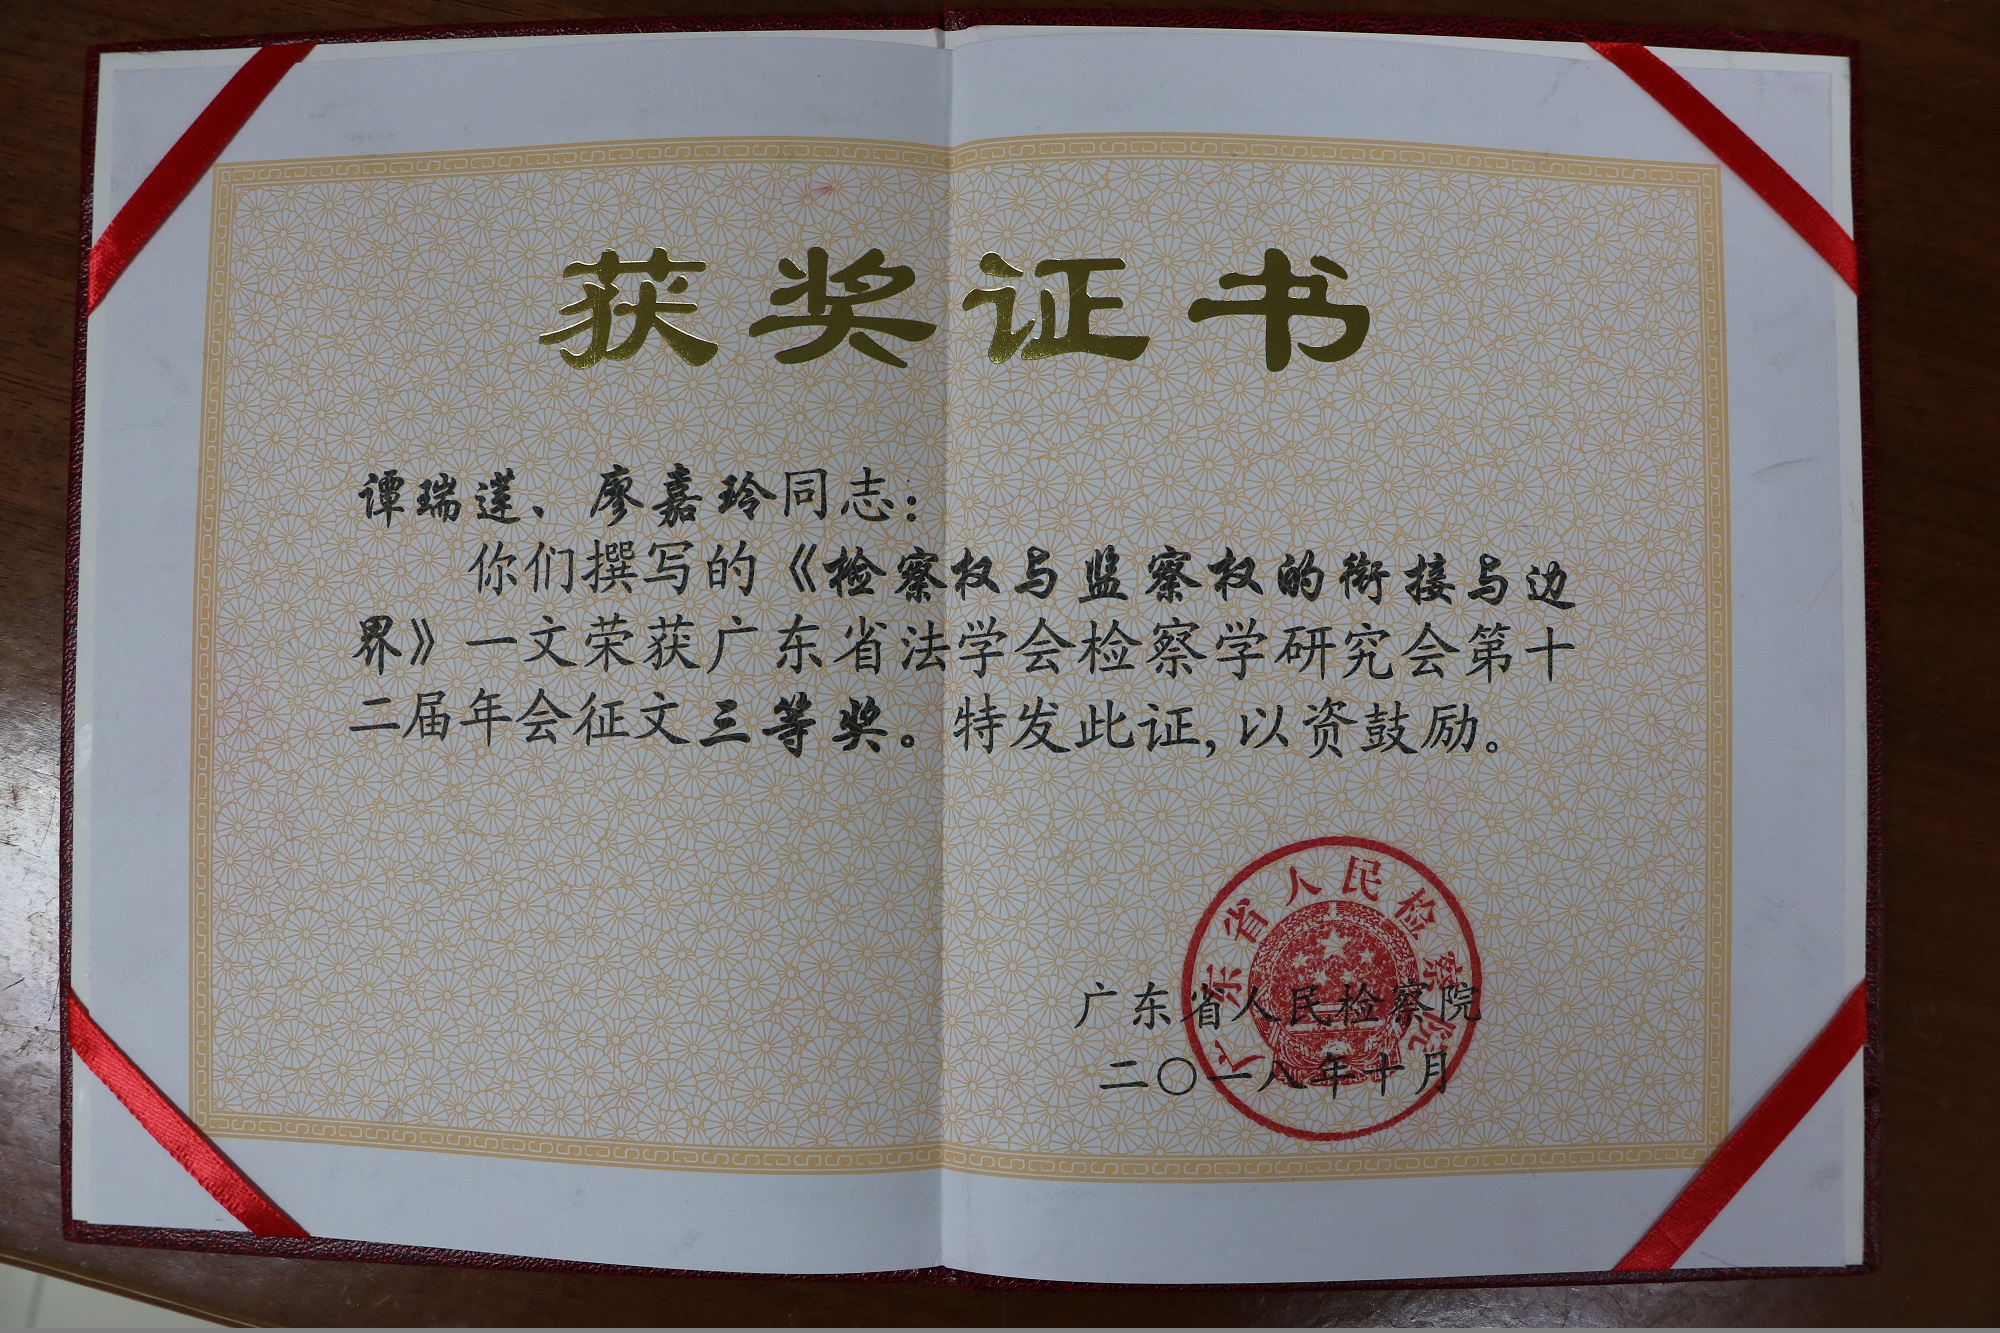 获奖证书
谭瑞莲、廖嘉玲同志：
你们撰写的《检察权与监察权的衔接与边
界》一文荣获广东省法学会检察学研究会第十
二届年会征文三等奖。特发此证,以资鼓励。
广东省人民检察院
广东省人民检察院
二〇一八年十月